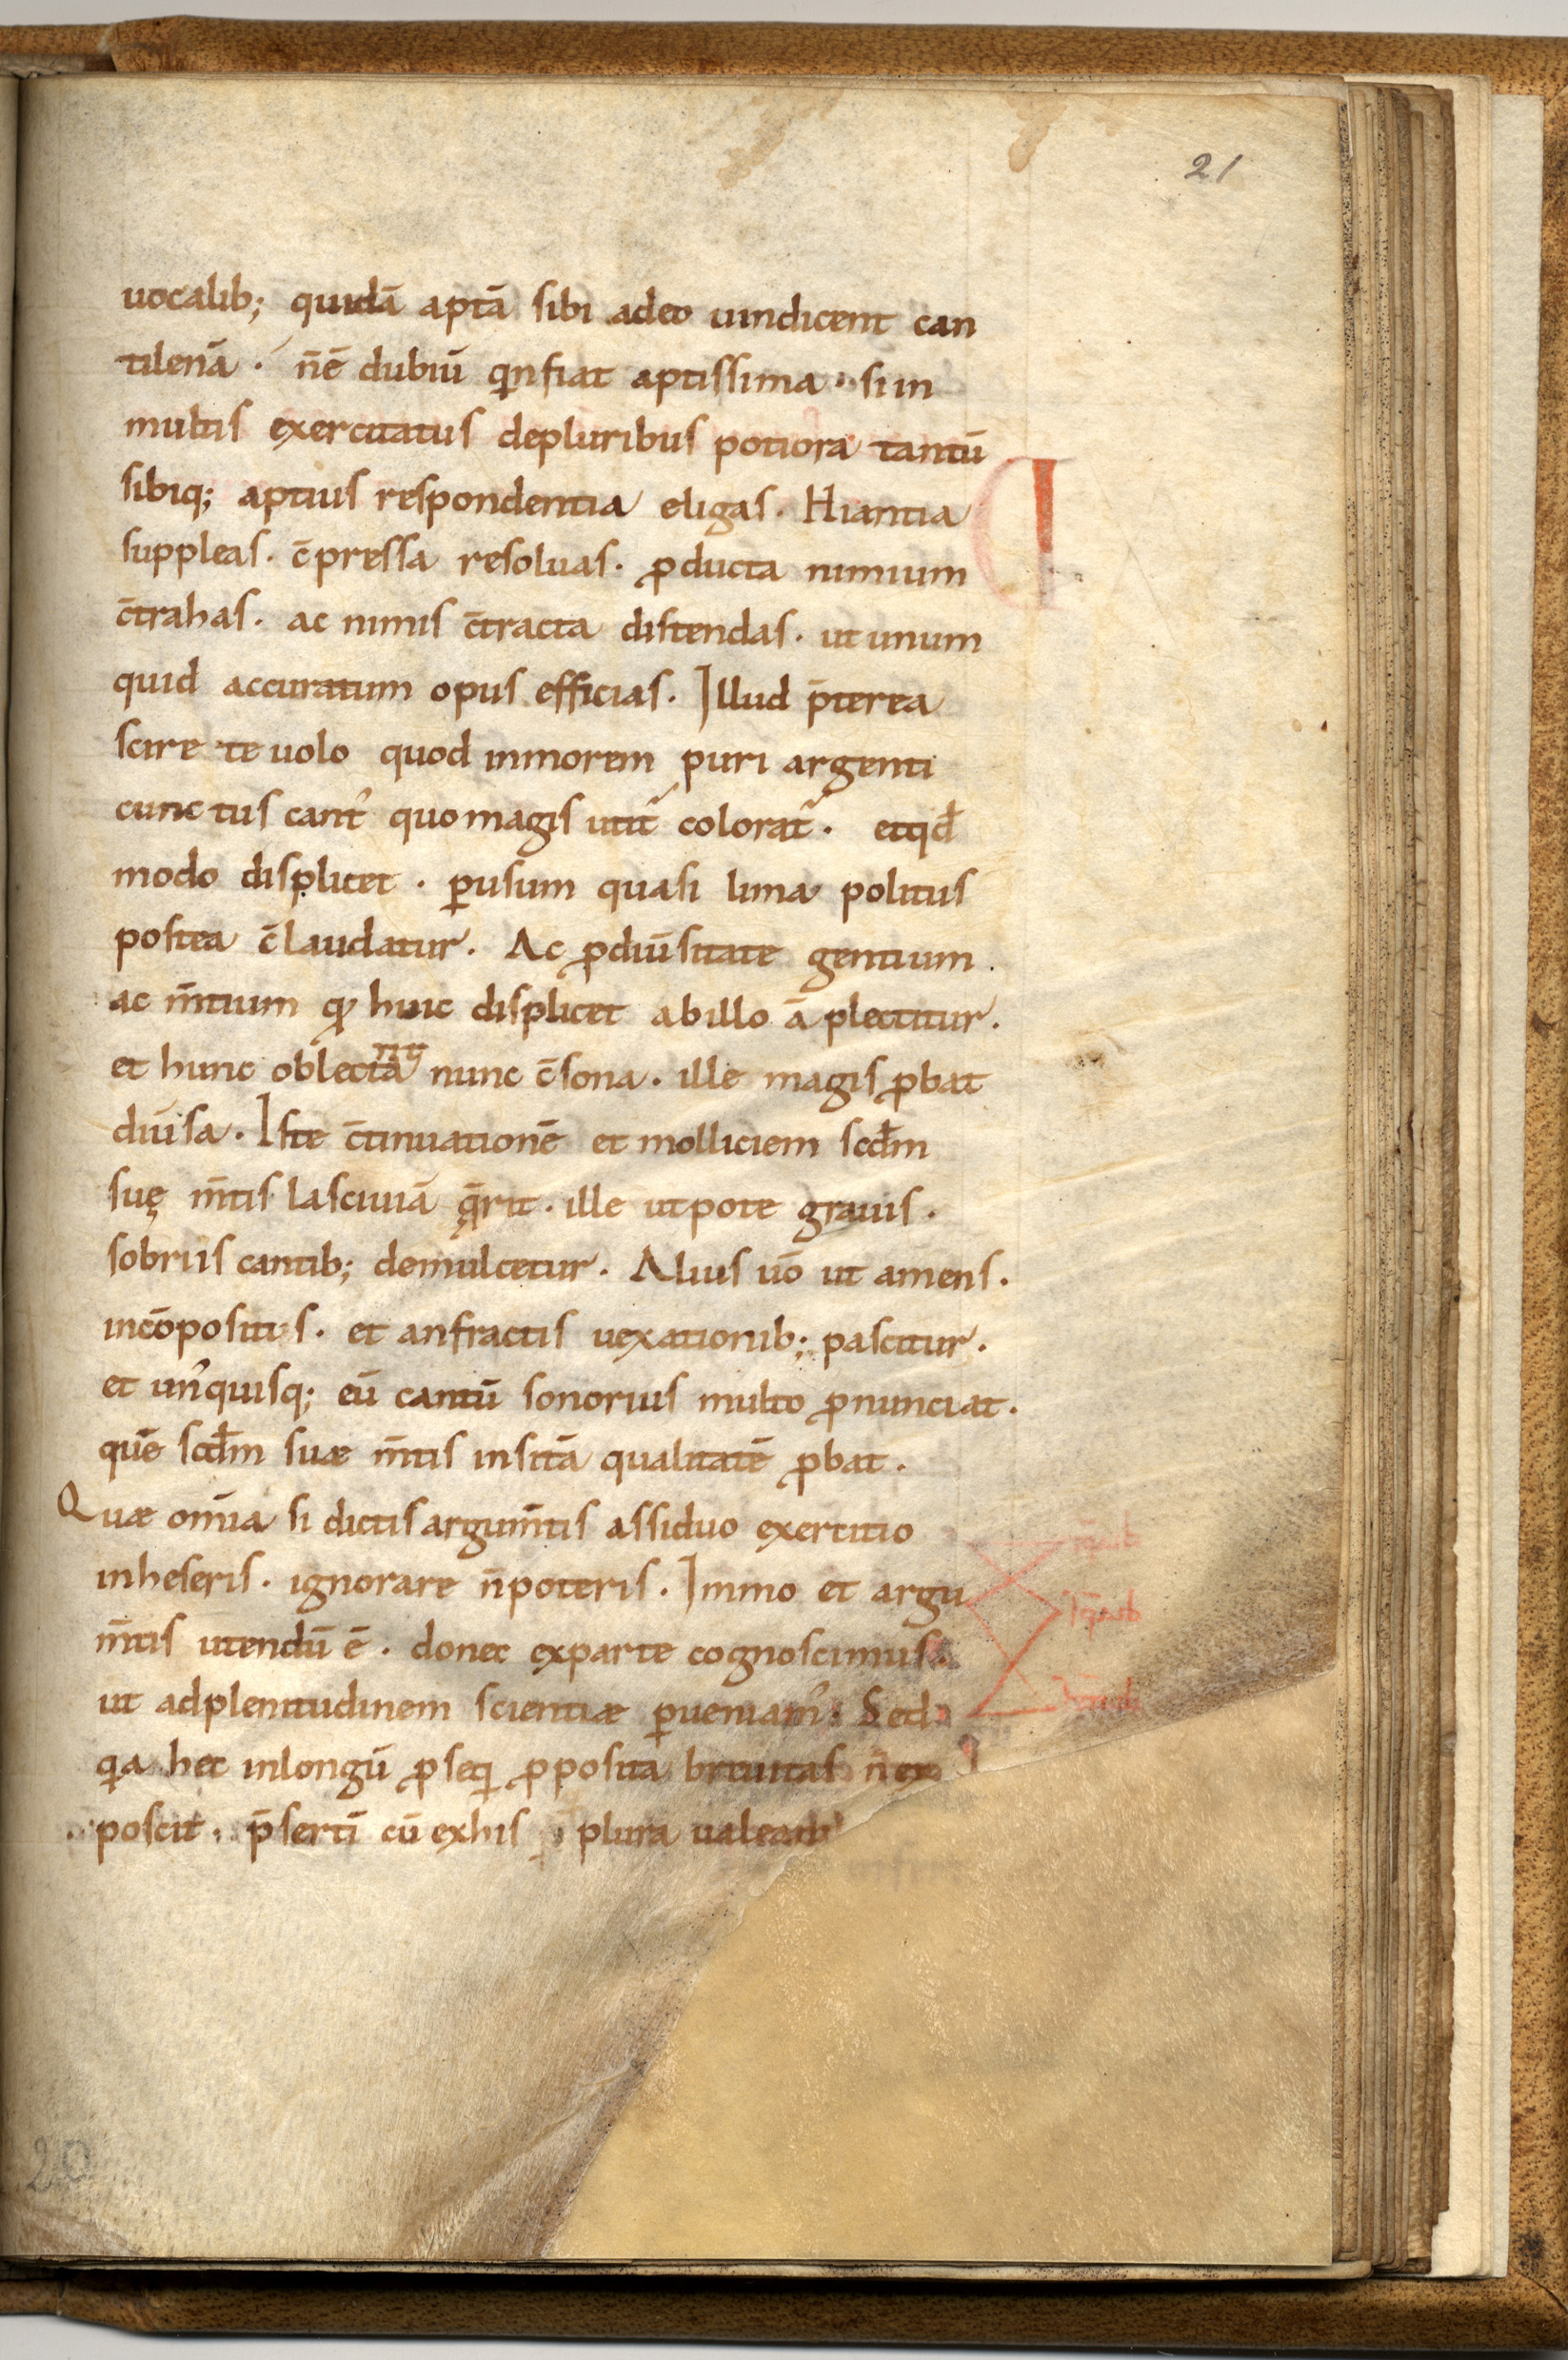 21
uocalib; quidā aptā sibi adeo uindicent can
tilenā · n̄ē dubiū qinfiat aptissima · si in
multis exercitatus depluribus potiora tantū
sibiq; aptius respondentia eligas · Hiantia
suppleas · c̄pressa resoluas · ꝓducta nimium
c̄trahas · ac nimis c̄tracta distendas · ut unum
quid accuratum opus efficias · Illud p̄terea
scire te uolo quod inmorem puri argenti
cunctus cant᾿ quo magis utit᾿ colorat᾿ · etqđ
modo displicet · ꝑusum quasi lima politus
postea c̄laudatur · Ac ꝓdiūsitate gentium
ac m̄tium qḋ huic displicet abillo āplectitur ·
et hunc oblectāt nunc c̄sona · ille magis ꝓbat
diūsa · Iste c̄tinuationē et molliciem scd̄m
suę m̄tis lasciuiā q̨̄rit · ille utpote grauis ·
sobriis cantib; demulcetur · Alius ūo ut amens ·
incōpositis · et anfractis uexationib; pascitur ·
et un᾿quisq; eū cantū sonorius multo ꝓnunciat ·
quē scd̄m suæ m̄tis insitā qualitatē ꝓbat ·
Quæ om̄ia si dictis argum̄tis assiduo exercitio
inheseris · ignorare n̄poteris · Immo et argu
m̄tis utendū ē · donec exparte cognoscimus
ut adplenitudinem scientiæ ꝑueniam᾿ · Sed
qia hec inlongū ꝓseqi ꝓposita breuitas n̄ ex
poscit · p̄sertī cū exhis plura
20